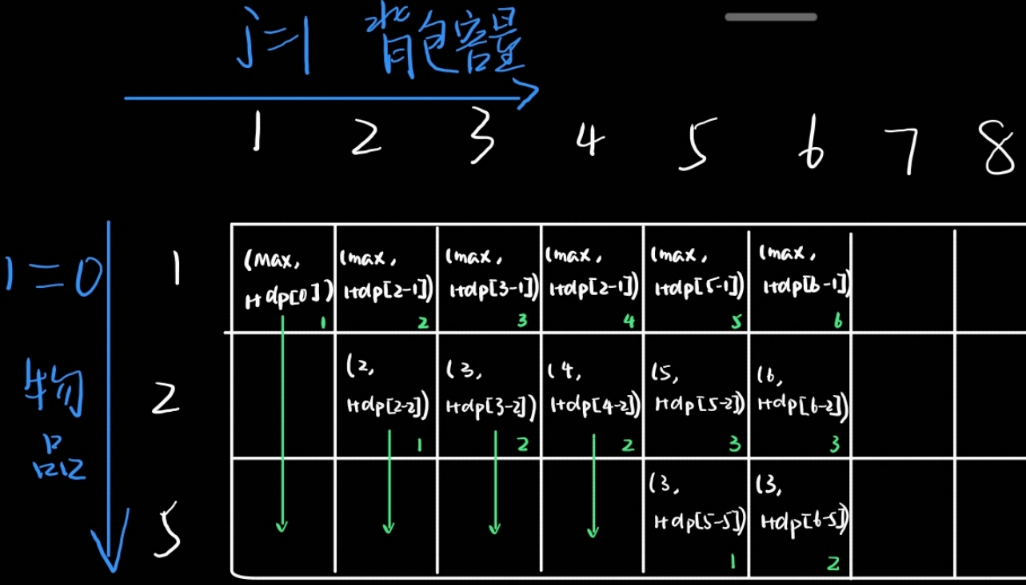 j=1 背包容量
1 2 3 4 5 6 7 8
i=0
物品
1
(max, 1+dp[0]) 1
(max, 1+dp[2-1]) 2
(max, 1+dp[3-1]) 3
(max, 1+dp[2-1]) 4
(max, 1+dp[5-1]) 5
(max, 1+dp[6-1]) 6
2
(2, 1+dp[2-2]) 1
(3, 1+dp[3-2]) 2
(4, 1+dp[4-2]) 2
(5, 1+dp[5-2]) 3
(6, 1+dp[6-2]) 3
5
(3, 1+dp[5-5]) 1
(3, 1+dp[6-5]) 2